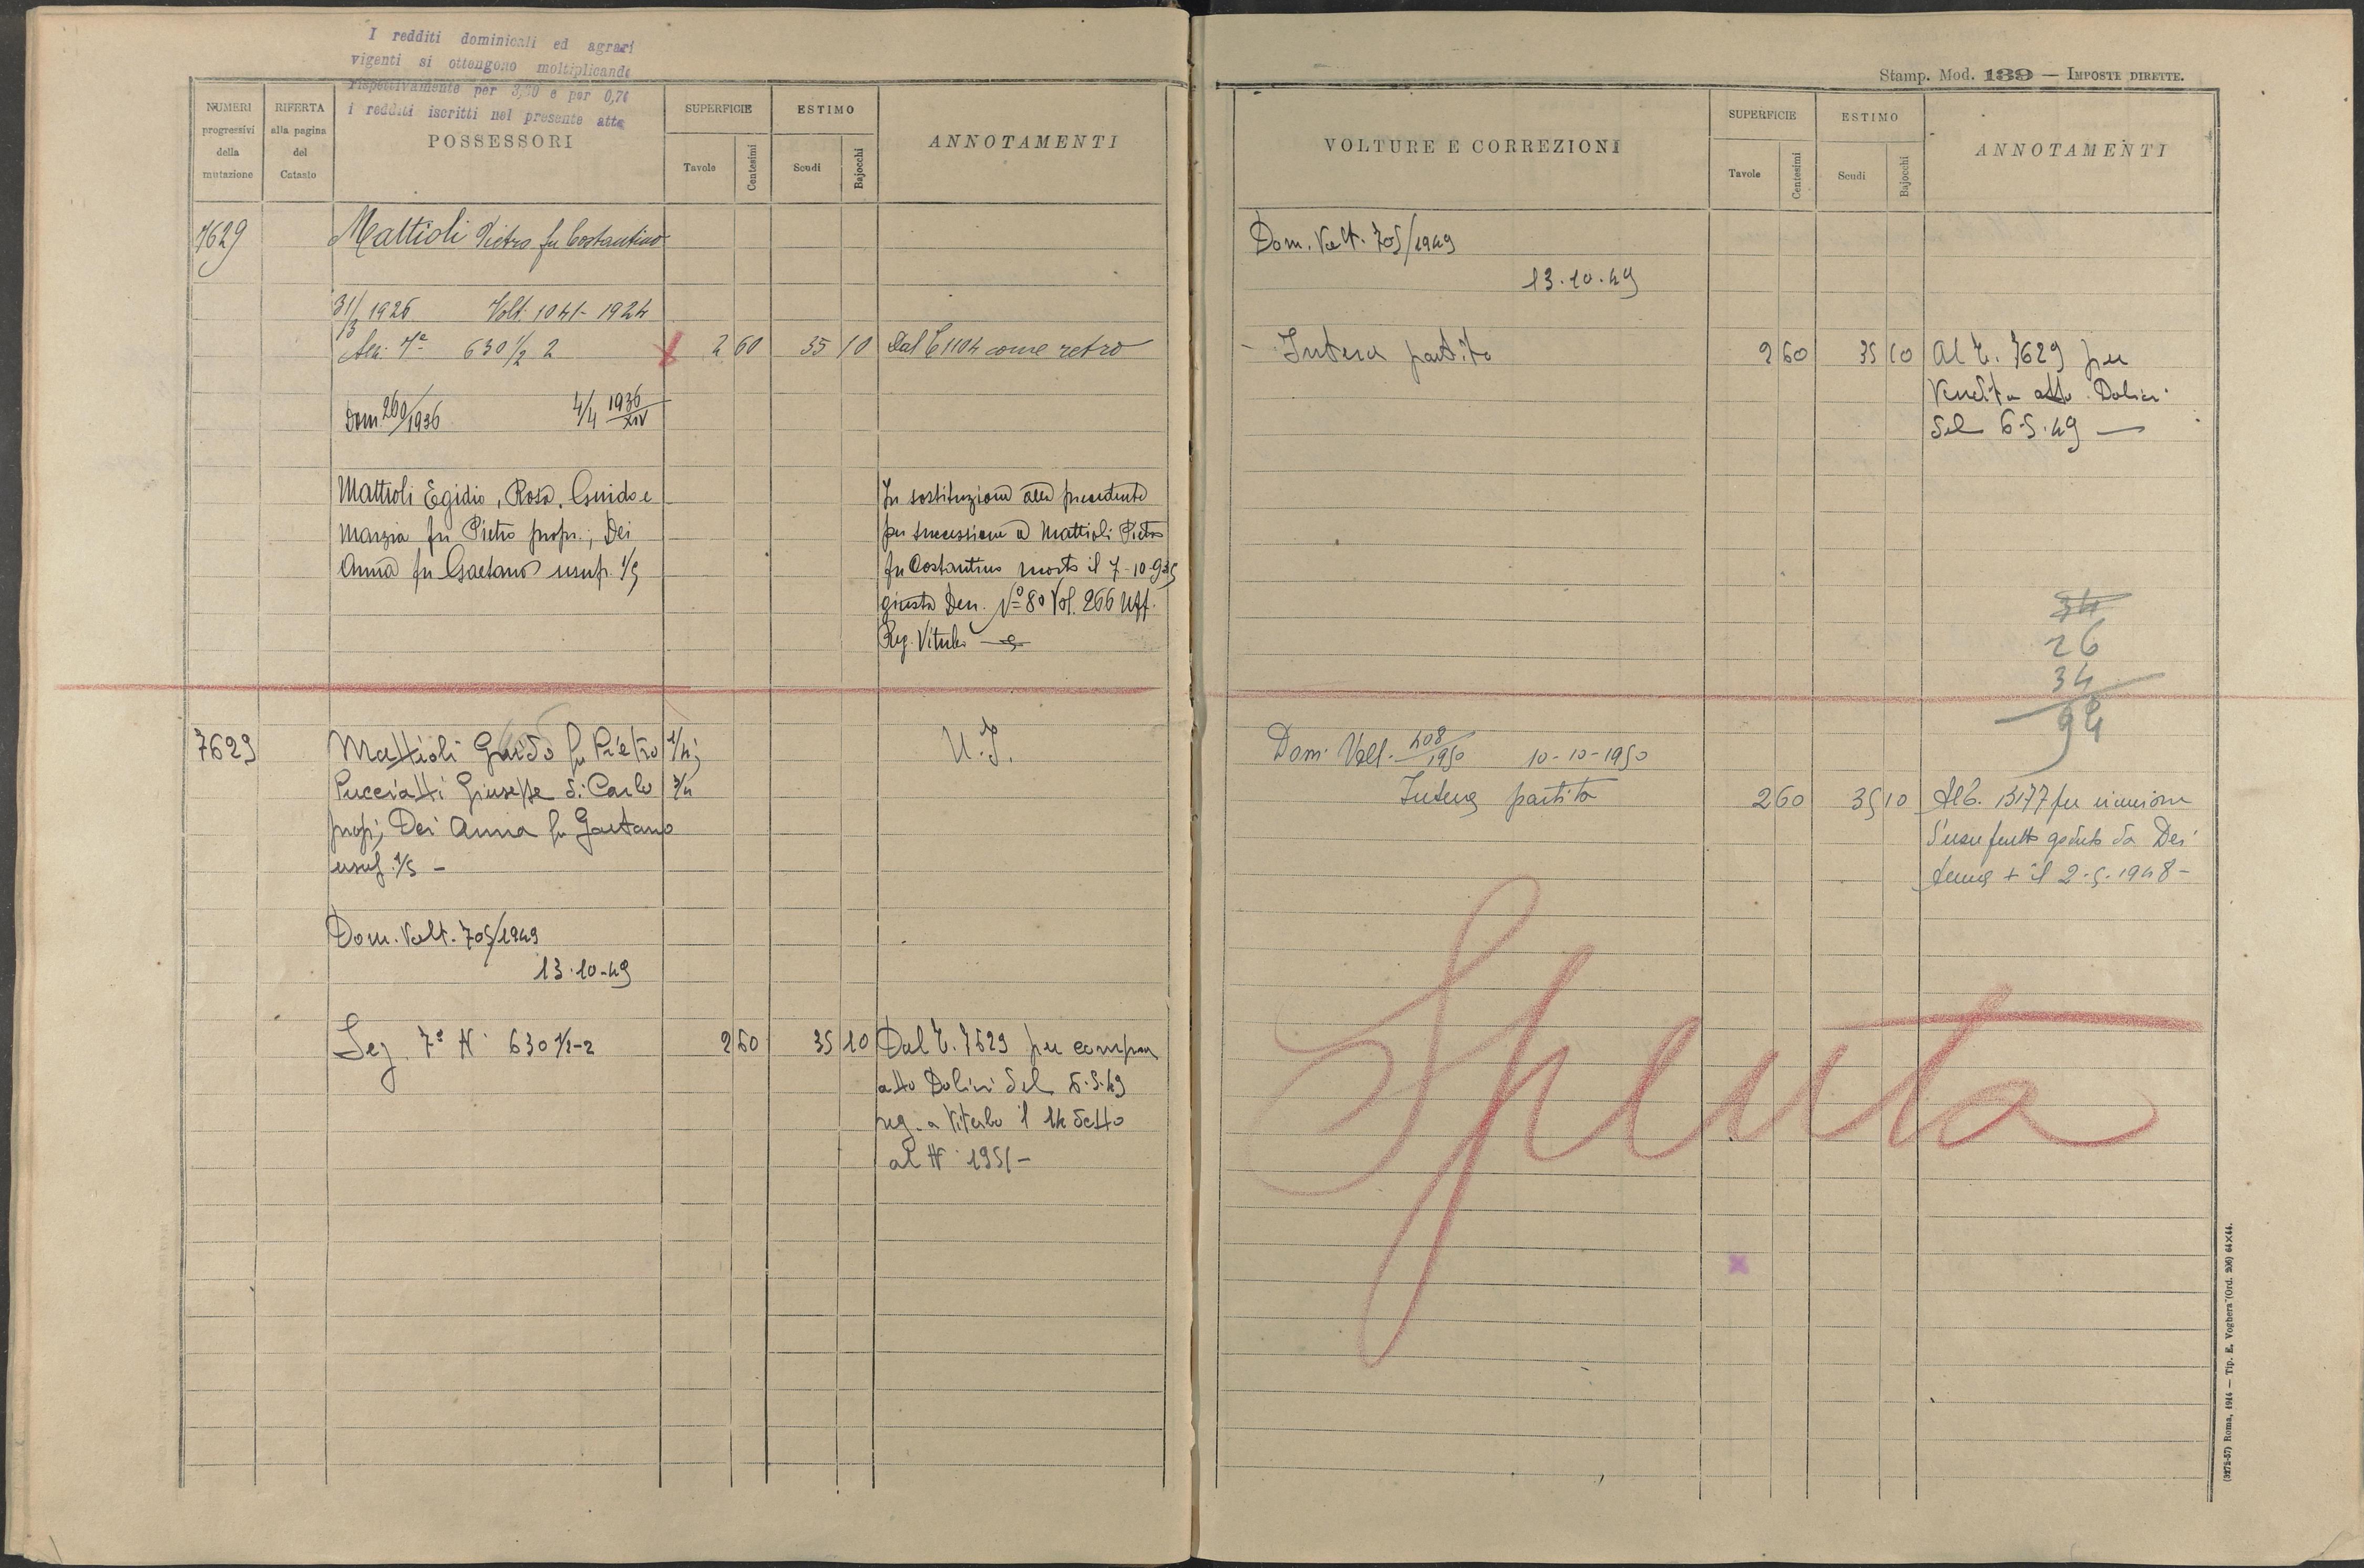 I redditi dominicali ed agrari
vigenti si ottengono moltiplicando
rispettivamente per 3,20 e per 0,70
i redditi iscritti nel presente atto
NUMERI progressivi della mutazione
RIFERTA alla pagina del Catasto
POSSESSORI
SUPERFICIE
Tavole
Centesimi
ESTIMO
Scudi
Bajocchi
ANNOTAMENTI
7629
Mattioli Pietro fu Costantino
31/3 1926 Volt. 1041-1924
Sez. 7ª 630 1/2 2
2 60
35 10
Dal C 1104 come retro
Dom. 260/1936 4/4 1936/XIV
Mattioli Egidio, Rosa, Guido e
Marzia fu Pietro propr.; Dei
Anna fu Gaetano usuf. 1/5
In sostituzione alla precedente
per successione a Mattioli Pietro
fu Costantino morto il 7-10-935
giusta Den. Nº 80 Vol. 266 Uff.
Reg. Viterbo
7629
Mattioli Guido fu Pietro 1/4;
Pucciatti Giuseppe di Carlo 3/4
propr; Dei Anna fu Gaetano
usuf. 1/5 -
U.I.
Dom. Volt. 705/1949
13.10-49
Sez. 7ª N. 630 1/2-2
2 60
35 10
Dal C. 7629 per compra
atto Dolini del 6.5.49
reg. a Viterbo il 14 detto
al N. 1951-
Stamp. Mod. 139 — IMPOSTE DIRETTE.
VOLTURE E CORREZIONI
SUPERFICIE
Tavole
Centesimi
ESTIMO
Scudi
Bajocchi
ANNOTAMENTI
Dom. Volt. 705/1949
13.10.49
- Intera partita
2 60
35 10
Al C. 7629 per
Vendita atto Dolini
del 6-5.49 —
34
26
34
94
Dom. Volt. 408/1950 10-10-1950
Intera partita
2 60
35 10
Al C. 13177 per riunione
d'usufrutto goduto da Dei
Anna + il 2-5-1948-
Spenta
(3275-57) Roma, 1914 — Tip. E. Voghera (Ord. 206) 64×44.